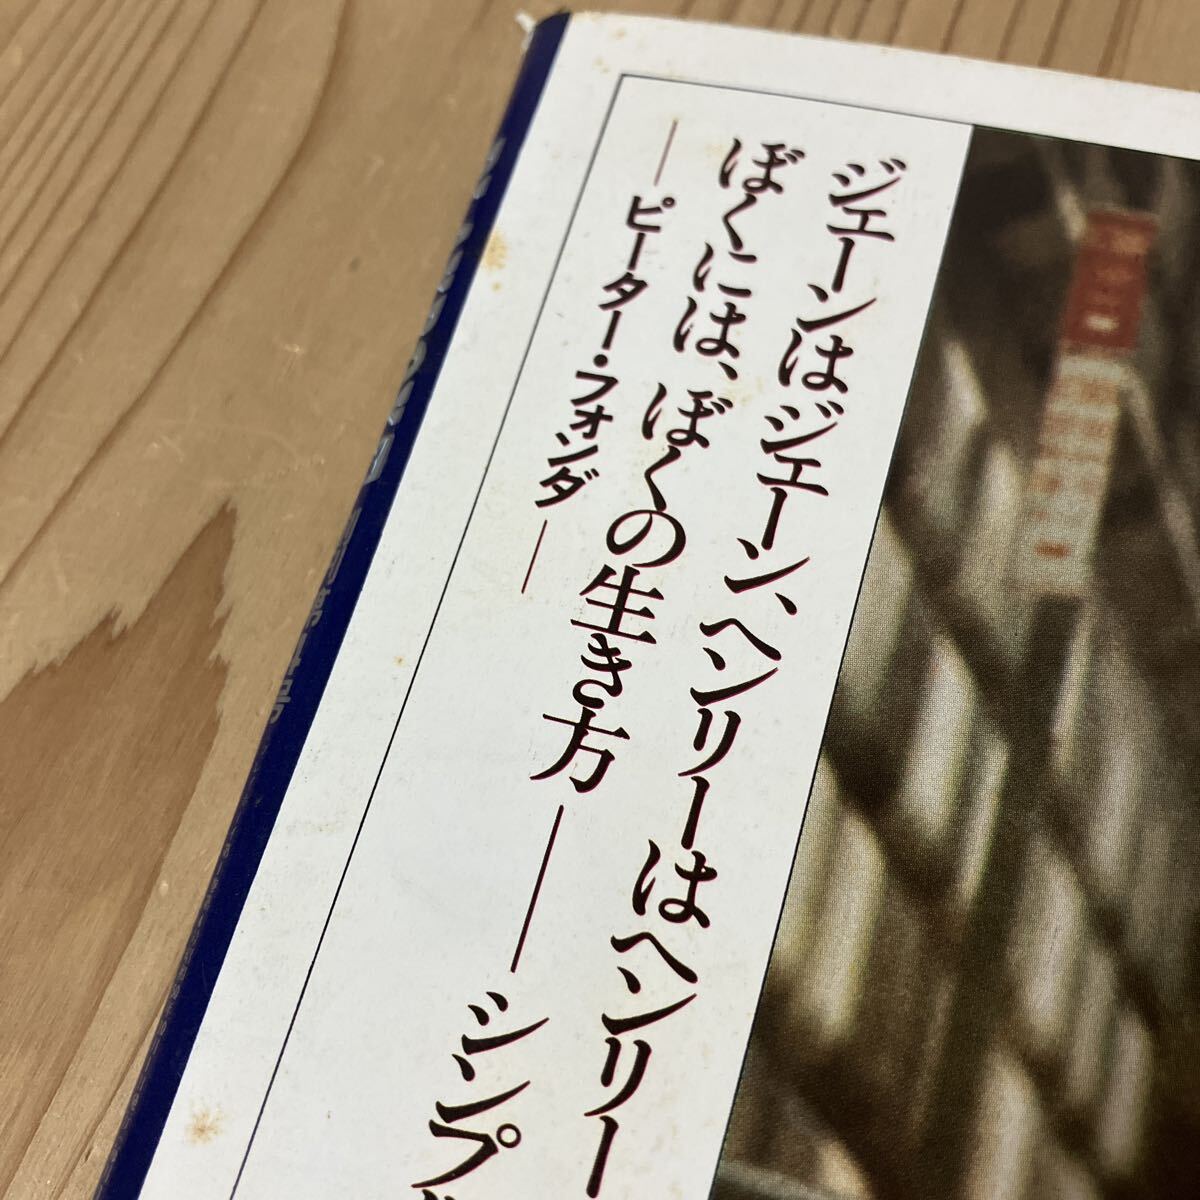 ジェーンはジェーン、ヘンリーはヘンリー
ぼくには、ぼくの生き方――シンプ
―ピーター・フォンダ―